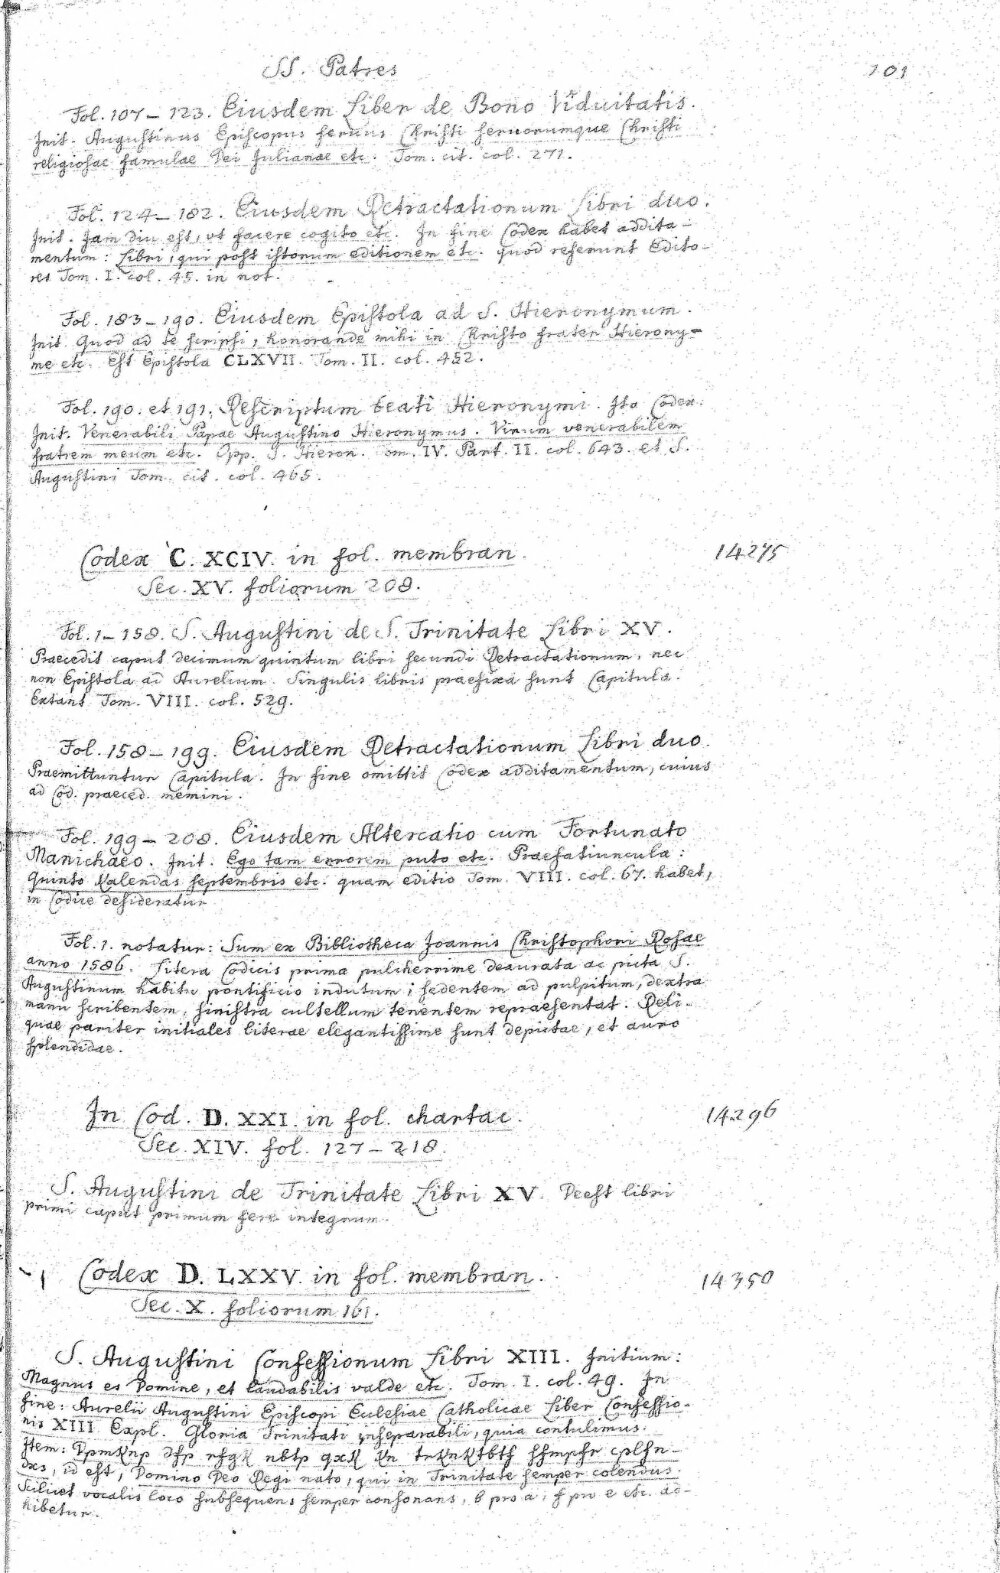 SS. Patres
101
Fol. 107 – 123. Eiusdem Liber de Bono Viduitatis.
Init. Augustinus Episcopus servus Christi servorumque Christi
religiosae famulae Dei Julianae etc. Tom. cit. col. 271.
Fol. 124 – 182. Eiusdem Retractationum Libri duo.
Init. Jam diu est, ut facere cogito etc. In fine Codex habet addita-
mentum: Libri, qui post istorum editionem etc. quod referunt Edito-
res Tom. I. col. 45. in not.
Fol. 183 – 190. Eiusdem Epistola ad S. Hieronymum.
Init. Quod ad te scripsi, honorande mihi in Christo frater Hierony-
me etc. Est Epistola CLXVII. Tom. II. col. 452.
Fol. 190. et 191. Rescriptum beati Hieronymi. Ita Codex.
Init. Venerabili Papae Augustino Hieronymus. Virum venerabilem
fratrem meum etc. Opp. S. Hieron. Tom. IV. Part. II. col. 643. et S.
Augustini Tom. cit. col. 465.
Codex C. XCIV. in fol. membran.
14275
Sec. XV. foliorum 208.
Fol. 1 – 158. S. Augustini de S. Trinitate Libri XV.
Praecedit caput decimum quintum libri secundi Retractationum, nec
non Epistola ad Aurelium. Singulis libris praefixa sunt Capitula.
Extant Tom. VIII. col. 529.
Fol. 158 – 199. Eiusdem Retractationum Libri duo.
Praemittuntur Capitula. In fine omittit Codex additamentum, cuius
ad Cod. praeced. memini.
Fol. 199 – 208. Eiusdem Altercatio cum Fortunato
Manichaeo. Init. Ego iam errorem puto etc. Praefatiuncula:
Quinto Kalendas septembris etc. quam editio Tom. VIII. col. 67. habet,
in Codice desideratur.
Fol. 1. notatur: Sum ex Bibliotheca Joannis Christophori Rosae
anno 1586. Litera Codicis prima pulcherrime deaurata ac picta S.
Augustinum habitu pontificio indutum, sedentem ad pulpitum, dextra
manu scribentem, sinistra cultellum tenentem repraesentat. Reli-
quae pariter initiales literae elegantissime sunt depictae, et auro
splendidae.
In Cod. D. XXI. in fol. chartac.
14296
Sec. XIV. fol. 127 – 218.
S. Augustini de Trinitate Libri XV. Deest libri
primi caput primum fere integrum.
Codex D. LXXV. in fol. membran.
14350
Sec. X. foliorum 161.
S. Augustini Confessionum Libri XIII. Initium:
Magnus es Domine, et laudabilis valde etc. Tom. I. col. 49. In
fine: Aurelii Augustini Episcopi Eclesiae Catholicae Liber Confessio-
nis XIII. Expl. Gloria Trinitati inseparabili, quia contulimus.
Item:
id est, Domino Deo Regi nato, qui in Trinitate semper colendus
Scilicet vocalis loco subsequens semper consonans, b pro a, f pro e etc. ad-
hibetur.